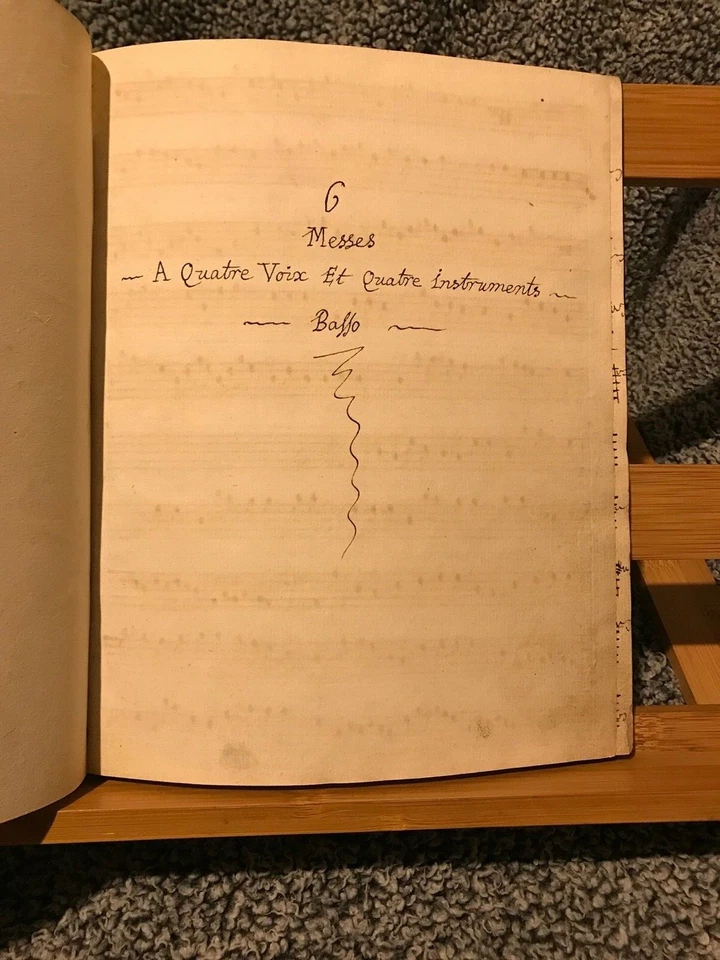 6
Messes
A Quatre Voix Et Quatre instruments
Basso